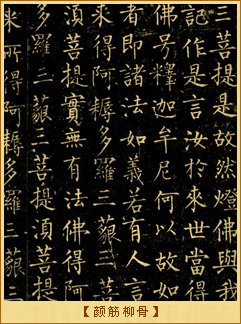 三菩提是故然燈佛與我
記作是言汝於來世當得
佛号釋迦牟尼何以故如
者即諸法如義若有人言
来得阿耨多羅三藐三菩
湏菩提實無有法佛得阿
多羅三藐三菩提湏菩提
来所得阿耨多羅三藐三
【颜筋柳骨】